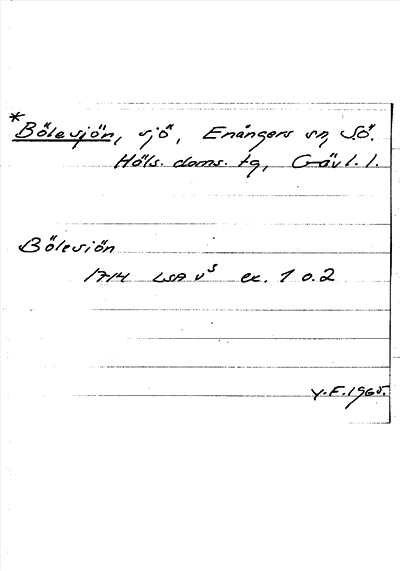 *Bölesjön, sjö, Enångers sn, Sö.
Häls. doms. tg, Gävl. l.
Bölesiön
1714 LSA V⁵ ex. 1 o. 2
Y.F. 1965.